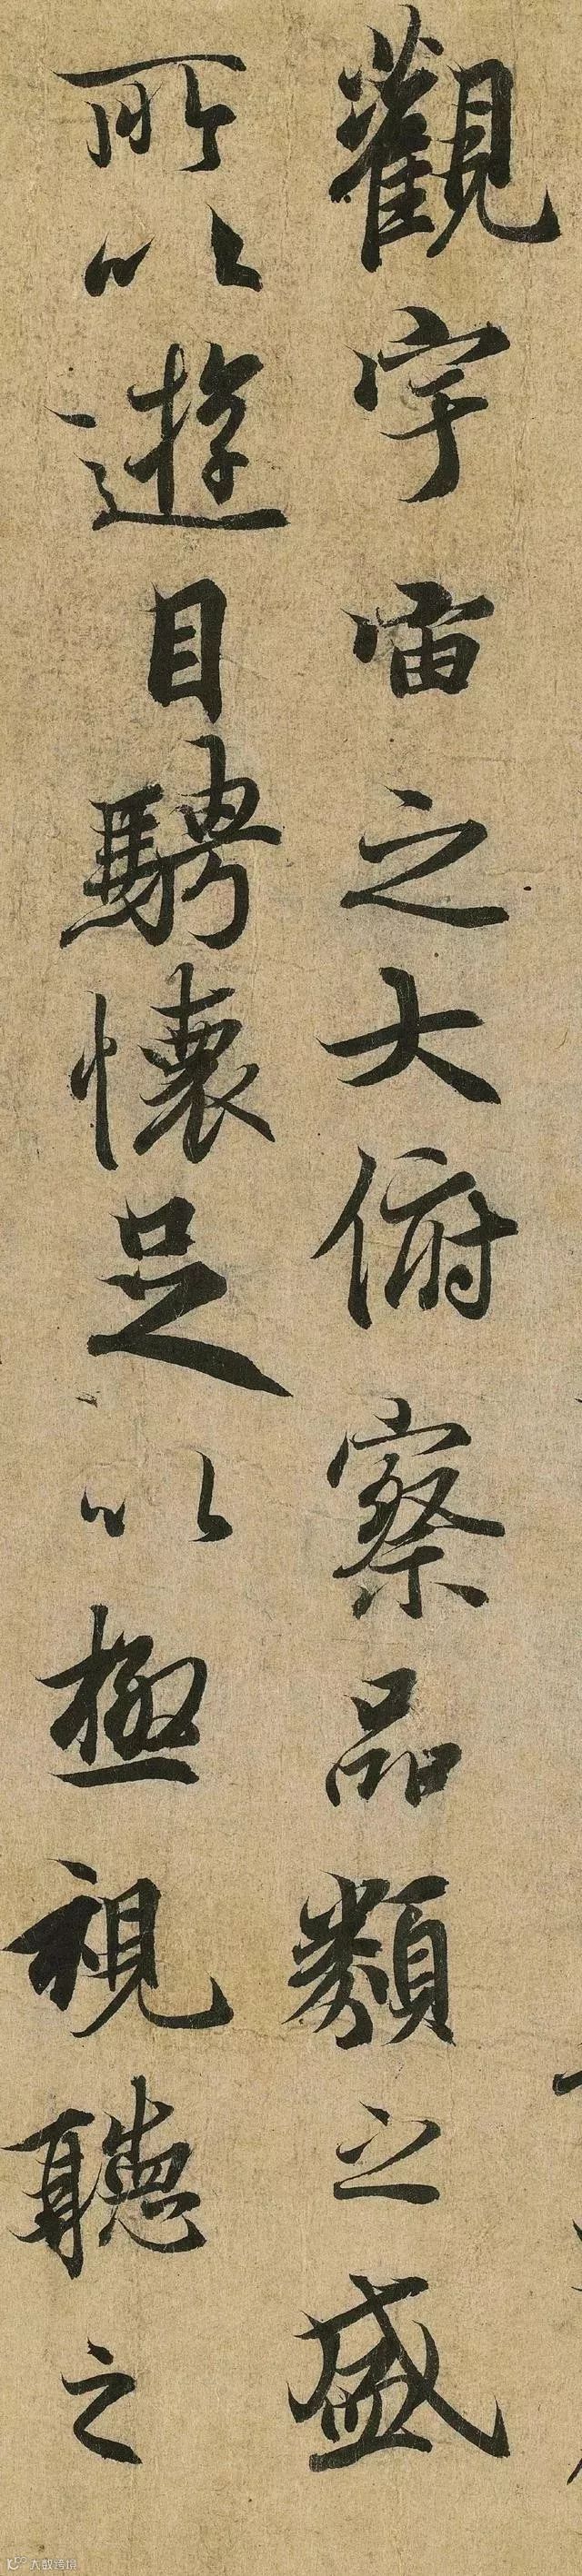 觀宇宙之大俯察品類之盛
所以遊目騁懷足以極視聽之
大数跨境